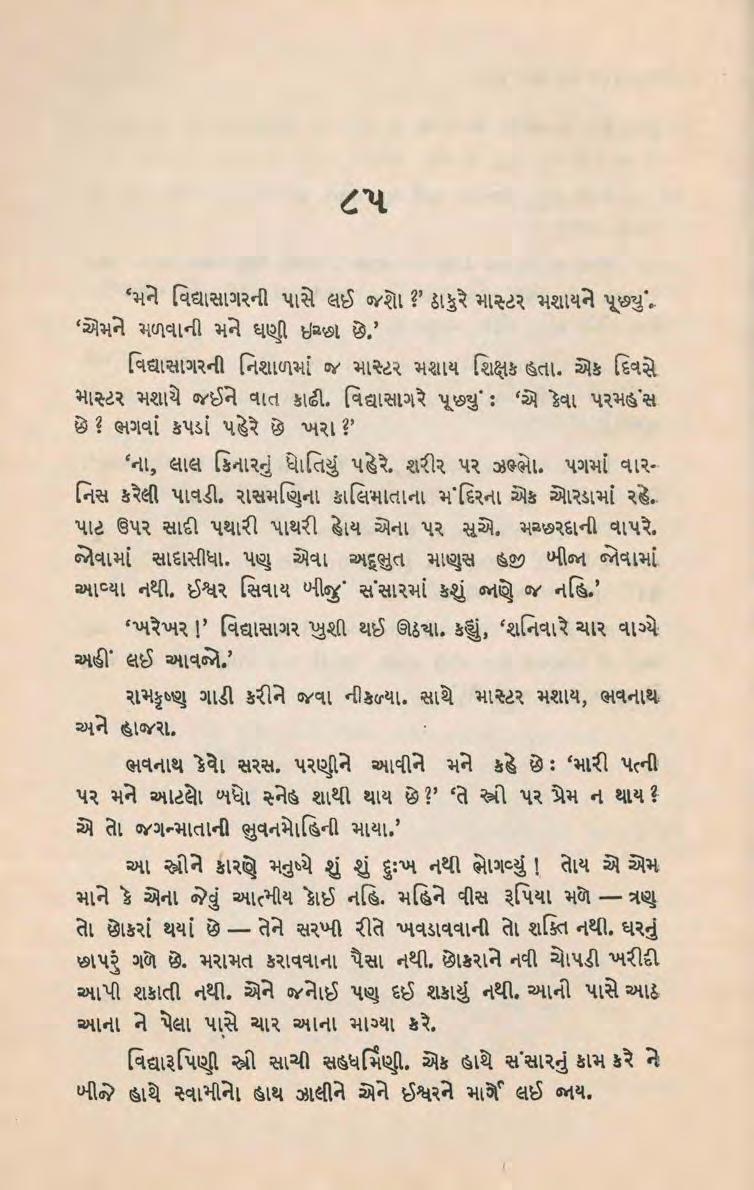 ૮૫
‘મને વિદ્યાસાગરની પાસે લઈ જશો ?’ ઠાકુરે માસ્ટર મશાયને પૂછ્યું.
‘એમને મળવાની મને ઘણી ઇચ્છા છે.’
વિદ્યાસાગરની નિશાળમાં જ માસ્ટર મશાય શિક્ષક હતા. એક દિવસે
માસ્ટર મશાયે જઈને વાત કાઢી. વિદ્યાસાગરે પૂછ્યું : ‘એ કેવા પરમહંસ
છે ? ભગવાં કપડાં પહેરે છે ખરા ?’
‘ના, લાલ કિનારનું ધોતિયું પહેરે. શરીર પર ઝભ્ભો. પગમાં વાર-
નિસ કરેલી પાવડી. રાસમણિના કાલિમાતાના મંદિરના એક ઓરડામાં રહે.
પાટ ઉપર સાદી પથારી પાથરી હોય એના પર સૂએ. મચ્છરદાની વાપરે.
જોવામાં સાદાસીધા. પણ એવા અદ્ભુત માણસ હજી બીજા જોવામાં
આવ્યા નથી. ઈશ્વર સિવાય બીજું સંસારમાં કશું જાણે જ નહિ.’
‘ખરેખર !’ વિદ્યાસાગર ખુશી થઈ ઊઠ્યા. કહ્યું, ‘શનિવારે ચાર વાગ્યે
અહીં લઈ આવજો.’
રામકૃષ્ણ ગાડી કરીને જવા નીકળ્યા. સાથે માસ્ટર મશાય, ભવનાથ
અને હાજરા.
ભવનાથ કેવો સરસ. પરણીને આવીને મને કહે છે : ‘મારી પત્ની
પર મને આટલો બધો સ્નેહ શાથી થાય છે ?’ ‘તે સ્ત્રી પર પ્રેમ ન થાય ?
એ તો જગન્માતાની ભુવનમોહિની માયા.’
આ સ્ત્રીને કારણે મનુષ્યે શું શું દુઃખ નથી ભોગવ્યું ! તોય એ એમ
માને કે એના જેવું આત્મીય કોઈ નહિ. મહિને વીસ રૂપિયા મળે — ત્રણ
તો છોકરાં થયાં છે — તેને સરખી રીતે ખવડાવવાની તો શક્તિ નથી. ઘરનું
છાપરું ગળે છે. મરામત કરાવવાના પૈસા નથી. છોકરાને નવી ચોપડી ખરીદી
આપી શકાતી નથી. એને જનોઈ પણ દઈ શકાયું નથી. આની પાસે આઠ
આના ને પેલા પાસે ચાર આના માગ્યા કરે.
વિદ્યારૂપિણી સ્ત્રી સાચી સહધર્મિણી. એક હાથે સંસારનું કામ કરે ને
બીજે હાથે સ્વામીનો હાથ ઝાલીને એને ઈશ્વરને માર્ગે લઈ જાય.